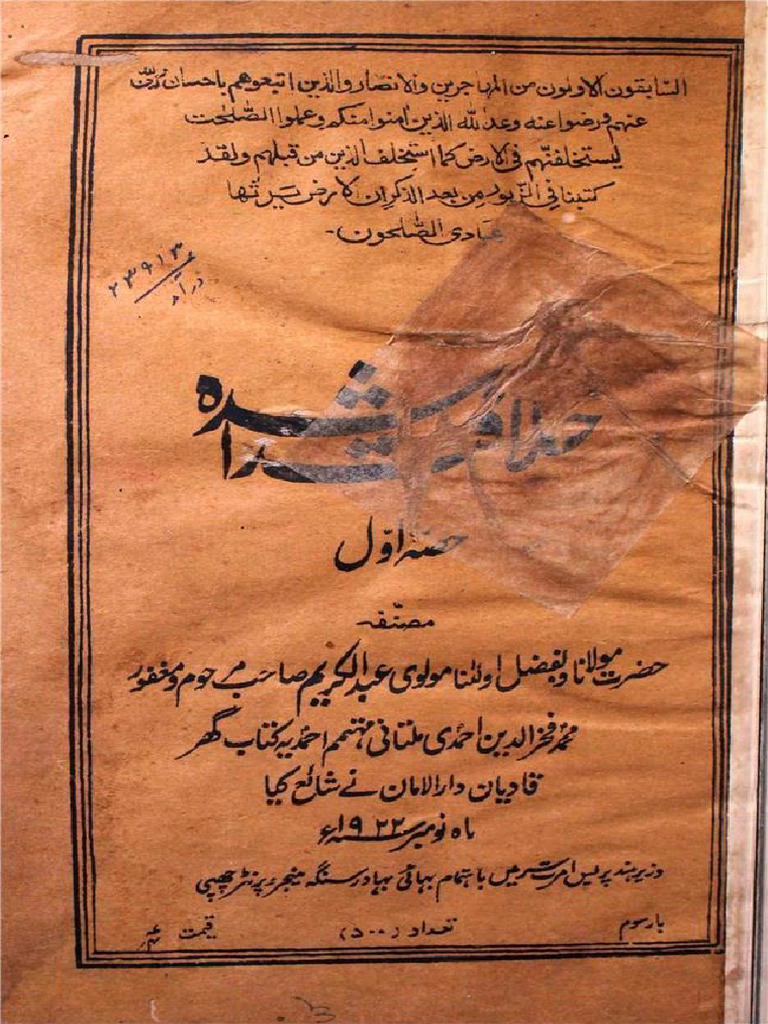 السابقون الاولون من المهاجرين والانصار والذين اتبعوهم باحسان رضی اللہ
عنهم ورضوا عنه وعد الله الذين امنوا منكم وعملوا الصلحت
ليستخلفنهم فی الارض كما استخلف الذين من قبلهم ولقد
كتبنا فی الزبور من بعد الذكر ان الارض يرثها
عبادی الصلحون۔
۲۳۹۱۳
خلافت راشدہ
حصہ اول
مصنفہ
حضرت مولانا وبفضل اولٰنا مولوی عبد الکریم صاحب مرحوم ومغفور
محمد فخر الدین احمدی ملتانی مہتمم احمدیہ کتاب گھر
قادیان دار الامان نے شائع کیا
ماہ نومبر ۱۹۲۲ء
وزیر ہند پریس امرتسر میں باہتمام بھائی بہادر سنگہ منیجر پرنٹر چھپی
بار سوم تعداد (۵۰۰) قیمت